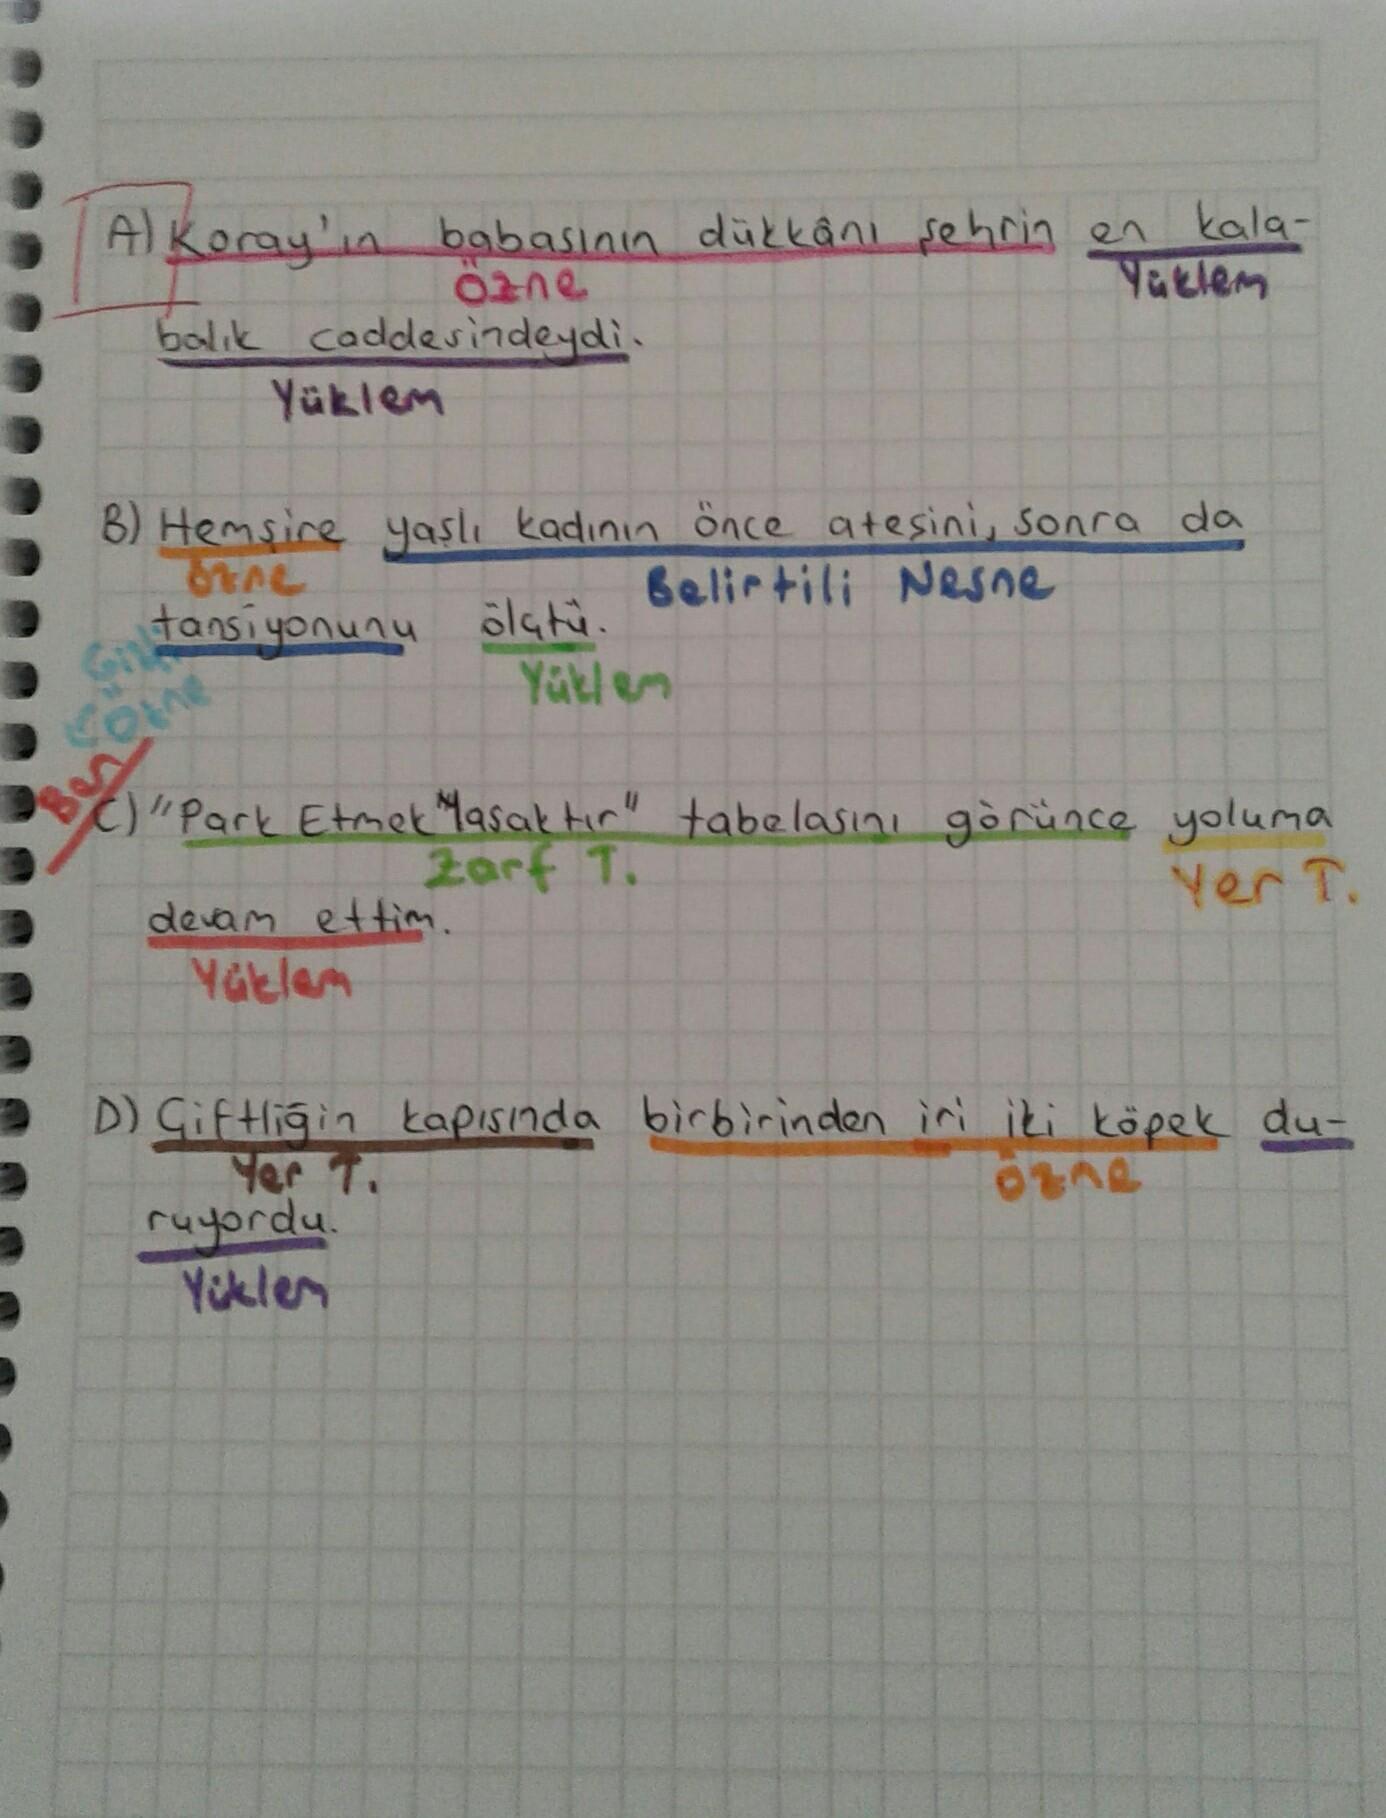 A) Koray'ın babasının dükkânı şehrin en kala-
Özne Yüklem
balık caddesindeydi.
Yüklem
B) Hemşire yaşlı kadının önce ateşini, sonra da
Özne Belirtili Nesne
tansiyonunu ölçtü.
Yüklem
Gizli
Özne
Ben
C) "Park Etmek Yasaktır" tabelasını görünce yoluma
Zarf T. Yer T.
devam ettim.
Yüklem
D) Çiftliğin kapısında birbirinden iri iki köpek du-
Yer T. Özne
ruyordu.
Yüklem